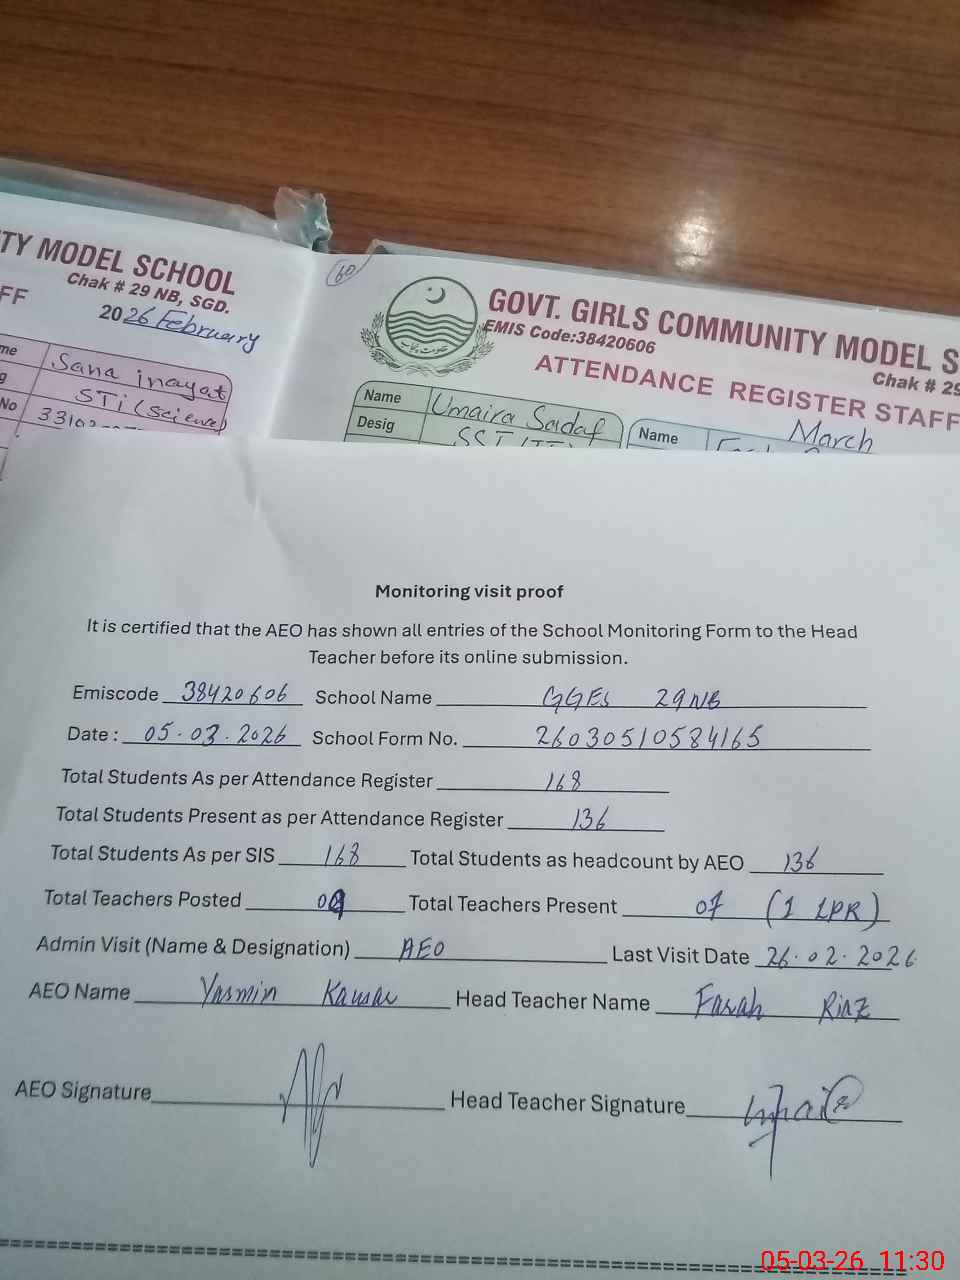 TY MODEL SCHOOL
Chak # 29 NB, SGD.
FF
2026 February
me Sana inayat
g STi (Science)
No
60
GOVT. GIRLS COMMUNITY MODEL S
EMIS Code:38420606
Chak # 29
ATTENDANCE REGISTER STAFF
March
Name Umaira Sadaf
Desig SST
Name
Monitoring visit proof
It is certified that the AEO has shown all entries of the School Monitoring Form to the Head
Teacher before its online submission.
Emiscode 38420606 School Name GGES 29NB
Date : 05.03.2026 School Form No. 26030510584165
Total Students As per Attendance Register 168
Total Students Present as per Attendance Register 136
Total Students As per SIS 168 Total Students as headcount by AEO 136
Total Teachers Posted 09 Total Teachers Present 07 (1 LPR)
Admin Visit (Name & Designation) AEO Last Visit Date 26.02.2026
AEO Name Yasmin Kausar Head Teacher Name Farah Riaz
AEO Signature Head Teacher Signature
05-03-26 11:30